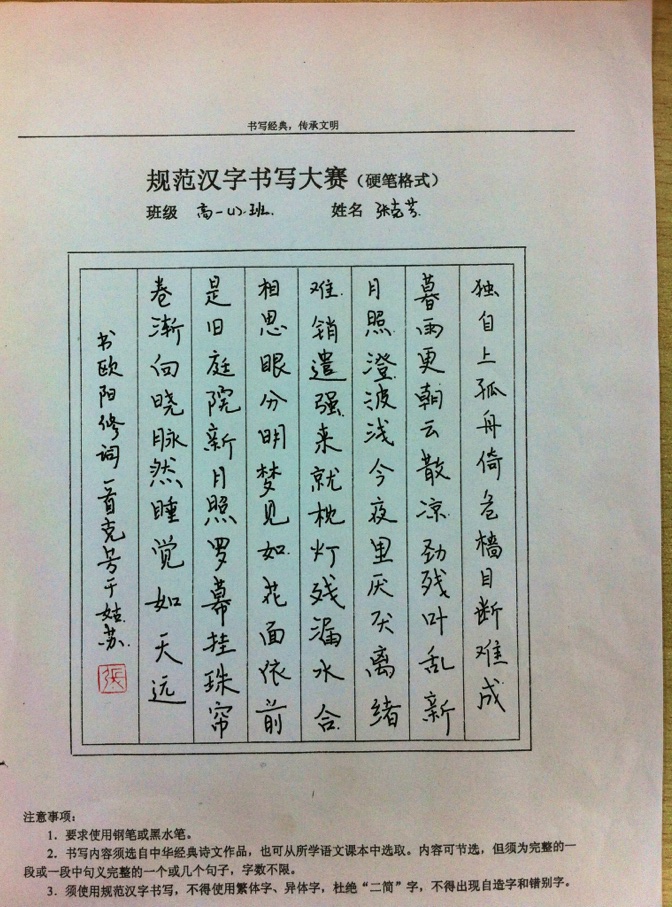 书写经典，传承文明
规范汉字书写大赛（硬笔格式）
班级 高一(4)班. 姓名 张克芳.
独自上孤舟倚危樯目断难成
暮雨更朝云散凉劲残叶乱新
月照澄波浅今夜里厌厌离绪
难销遣强来就枕灯残漏水合
相思眼分明梦见如花面依前
是旧庭院新月照罗幕挂珠帘
卷渐向晓脉然睡觉如天远
书欧阳修词一首克芳于姑苏.
張
注意事项：
1．要求使用钢笔或黑水笔。
2．书写内容须选自中华经典诗文作品，也可从所学语文课本中选取。内容可节选，但须为完整的一
段或一段中句义完整的一个或几个句子，字数不限。
3．须使用规范汉字书写，不得使用繁体字、异体字，杜绝“二简”字，不得出现自造字和错别字。